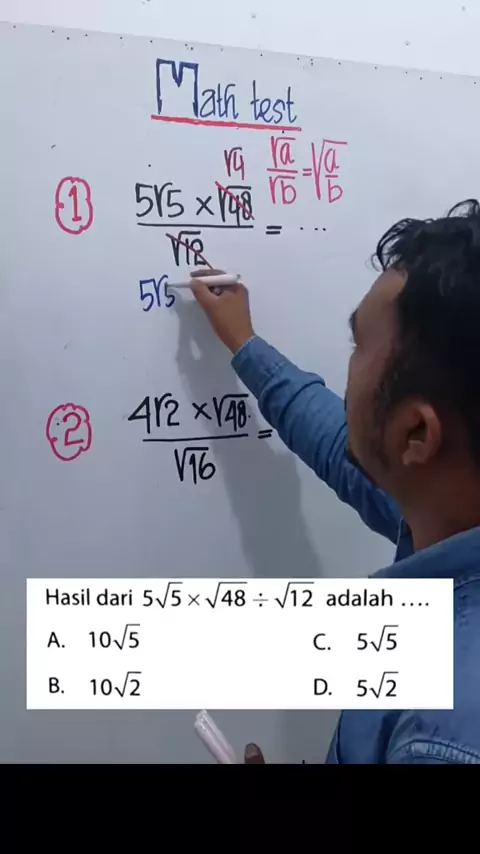 Math test
√4
√a/√b = √(a/b)
1
5√5 × √48
√12
= ...
5√5
2
4√2 × √48
√16
=
Hasil dari 5√5 × √48 ÷ √12 adalah ....
A. 10√5
C. 5√5
B. 10√2
D. 5√2